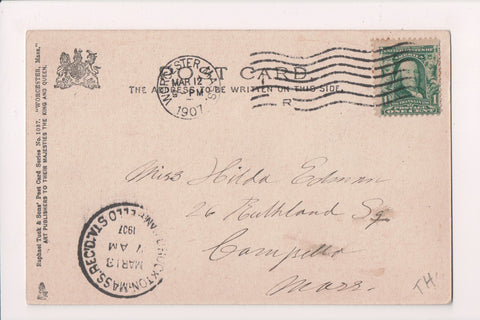 Raphael Tuck & Sons' Post Card Series No. 1037. "WORCESTER, Mass."
ART PUBLISHERS TO THEIR MAJESTIES THE KING AND QUEEN.
POST CARD
THE ADDRESS TO BE WRITTEN ON THIS SIDE.
WORCESTER, MASS.
MAR 12
PM
1907
R
1
Miss Hilda Edman
26 Ruthland Sq
Campello
Mass.
BROCKTON, MASS. REC'D.
CAMPELLO STA.
MAR 13
7 AM
1907
TH